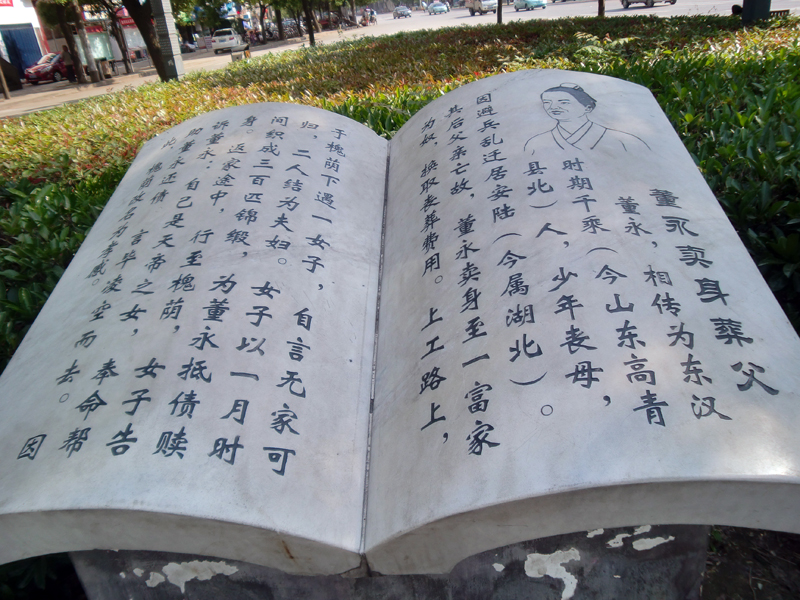 董永卖身葬父
董永，相传为东汉
时期千乘（今山东高青
县北）人，少年丧母，
因避兵乱迁居安陆（今属湖北）。
其后父亲亡故，董永卖身至一富家
为奴，换取丧葬费用。上工路上，
于槐荫下遇一女子，自言无家可
归，二人结为夫妇。女子以一月时
间织成三百匹锦缎，为董永抵债赎
身。返家途中，行至槐荫，女子告
诉董永：自己是天帝之女，奉命帮
助董永还债。言毕凌空而去。因
此，槐荫改名为孝感。